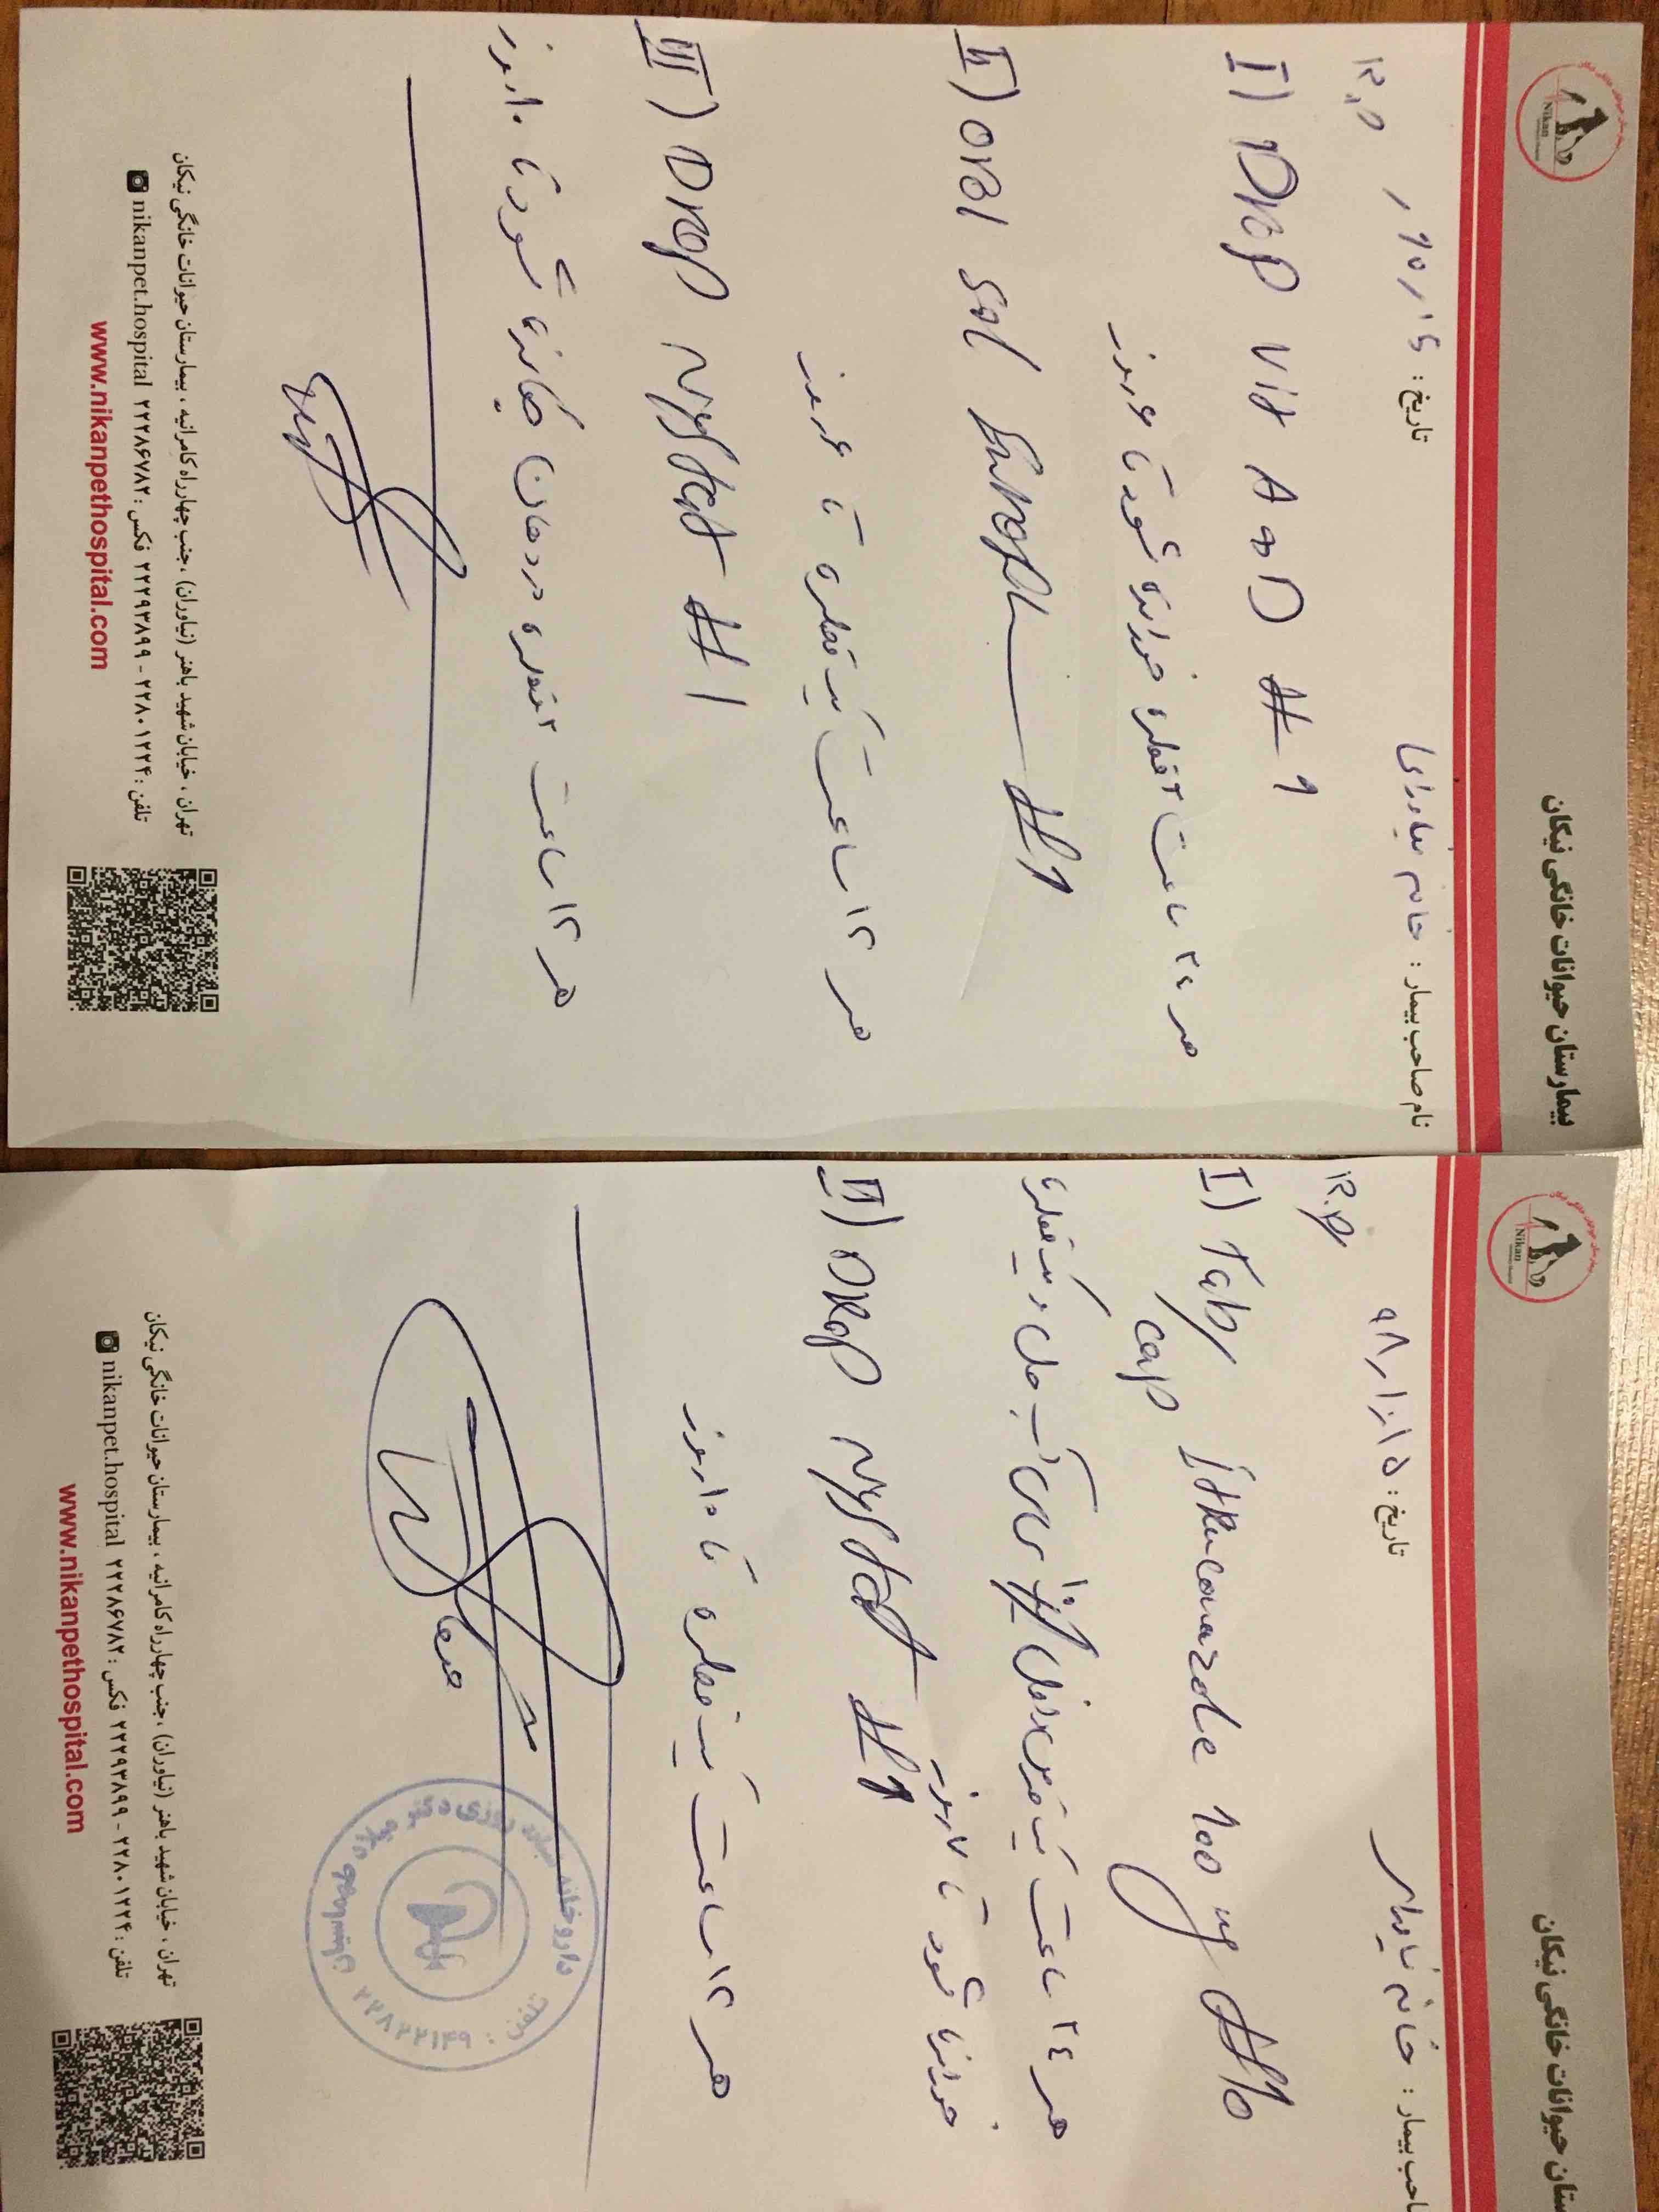 بیمارستان حیوانات خانگی نیکان
Nikan
نام صاحب بیمار : خانم نیاورانی
تاریخ :
I) Drop Vit A+D # 1
هر ۲۴ ساعت ۲ قطره خورانده شود تا روز
II) oral sol # 1
هر ۱۲ ساعت یک قطره تا روز
III) Drop Nystat # 1
هر ۱۲ ساعت ۲ قطره در دهان چکانده شود تا ۱۰ روز
تهران ، خیابان شهید باهنر (نیاوران) ، جنب چهارراه کامرانیه ، بیمارستان حیوانات خانگی نیکان
تلفن : ۲۲۸۰۱۲۲۴ - ۲۲۲۹۳۸۹۹ فکس : ۲۲۲۸۶۷۸۲ nikanpet.hospital
www.nikanpethospital.com
ستان حیوانات خانگی نیکان
Nikan
صاحب بیمار : خانم
تاریخ :
I) Tab/ Itraconazole 100 mg
cap
هر ۲۴ ساعت یک
خورانده شود تا روز
II) Drop Nystat # 1
هر ۱۲ ساعت یک قطره تا روز
داروخانه شبانه روزی دکتر میلاد
تلفن : ۲۲۸۲۲۱۴۹
تهران ، خیابان شهید باهنر (نیاوران) ، جنب چهارراه کامرانیه ، بیمارستان حیوانات خانگی نیکان
تلفن : ۲۲۸۰۱۲۲۴ - ۲۲۲۹۳۸۹۹ فکس : ۲۲۲۸۶۷۸۲ nikanpet.hospital
www.nikanpethospital.com